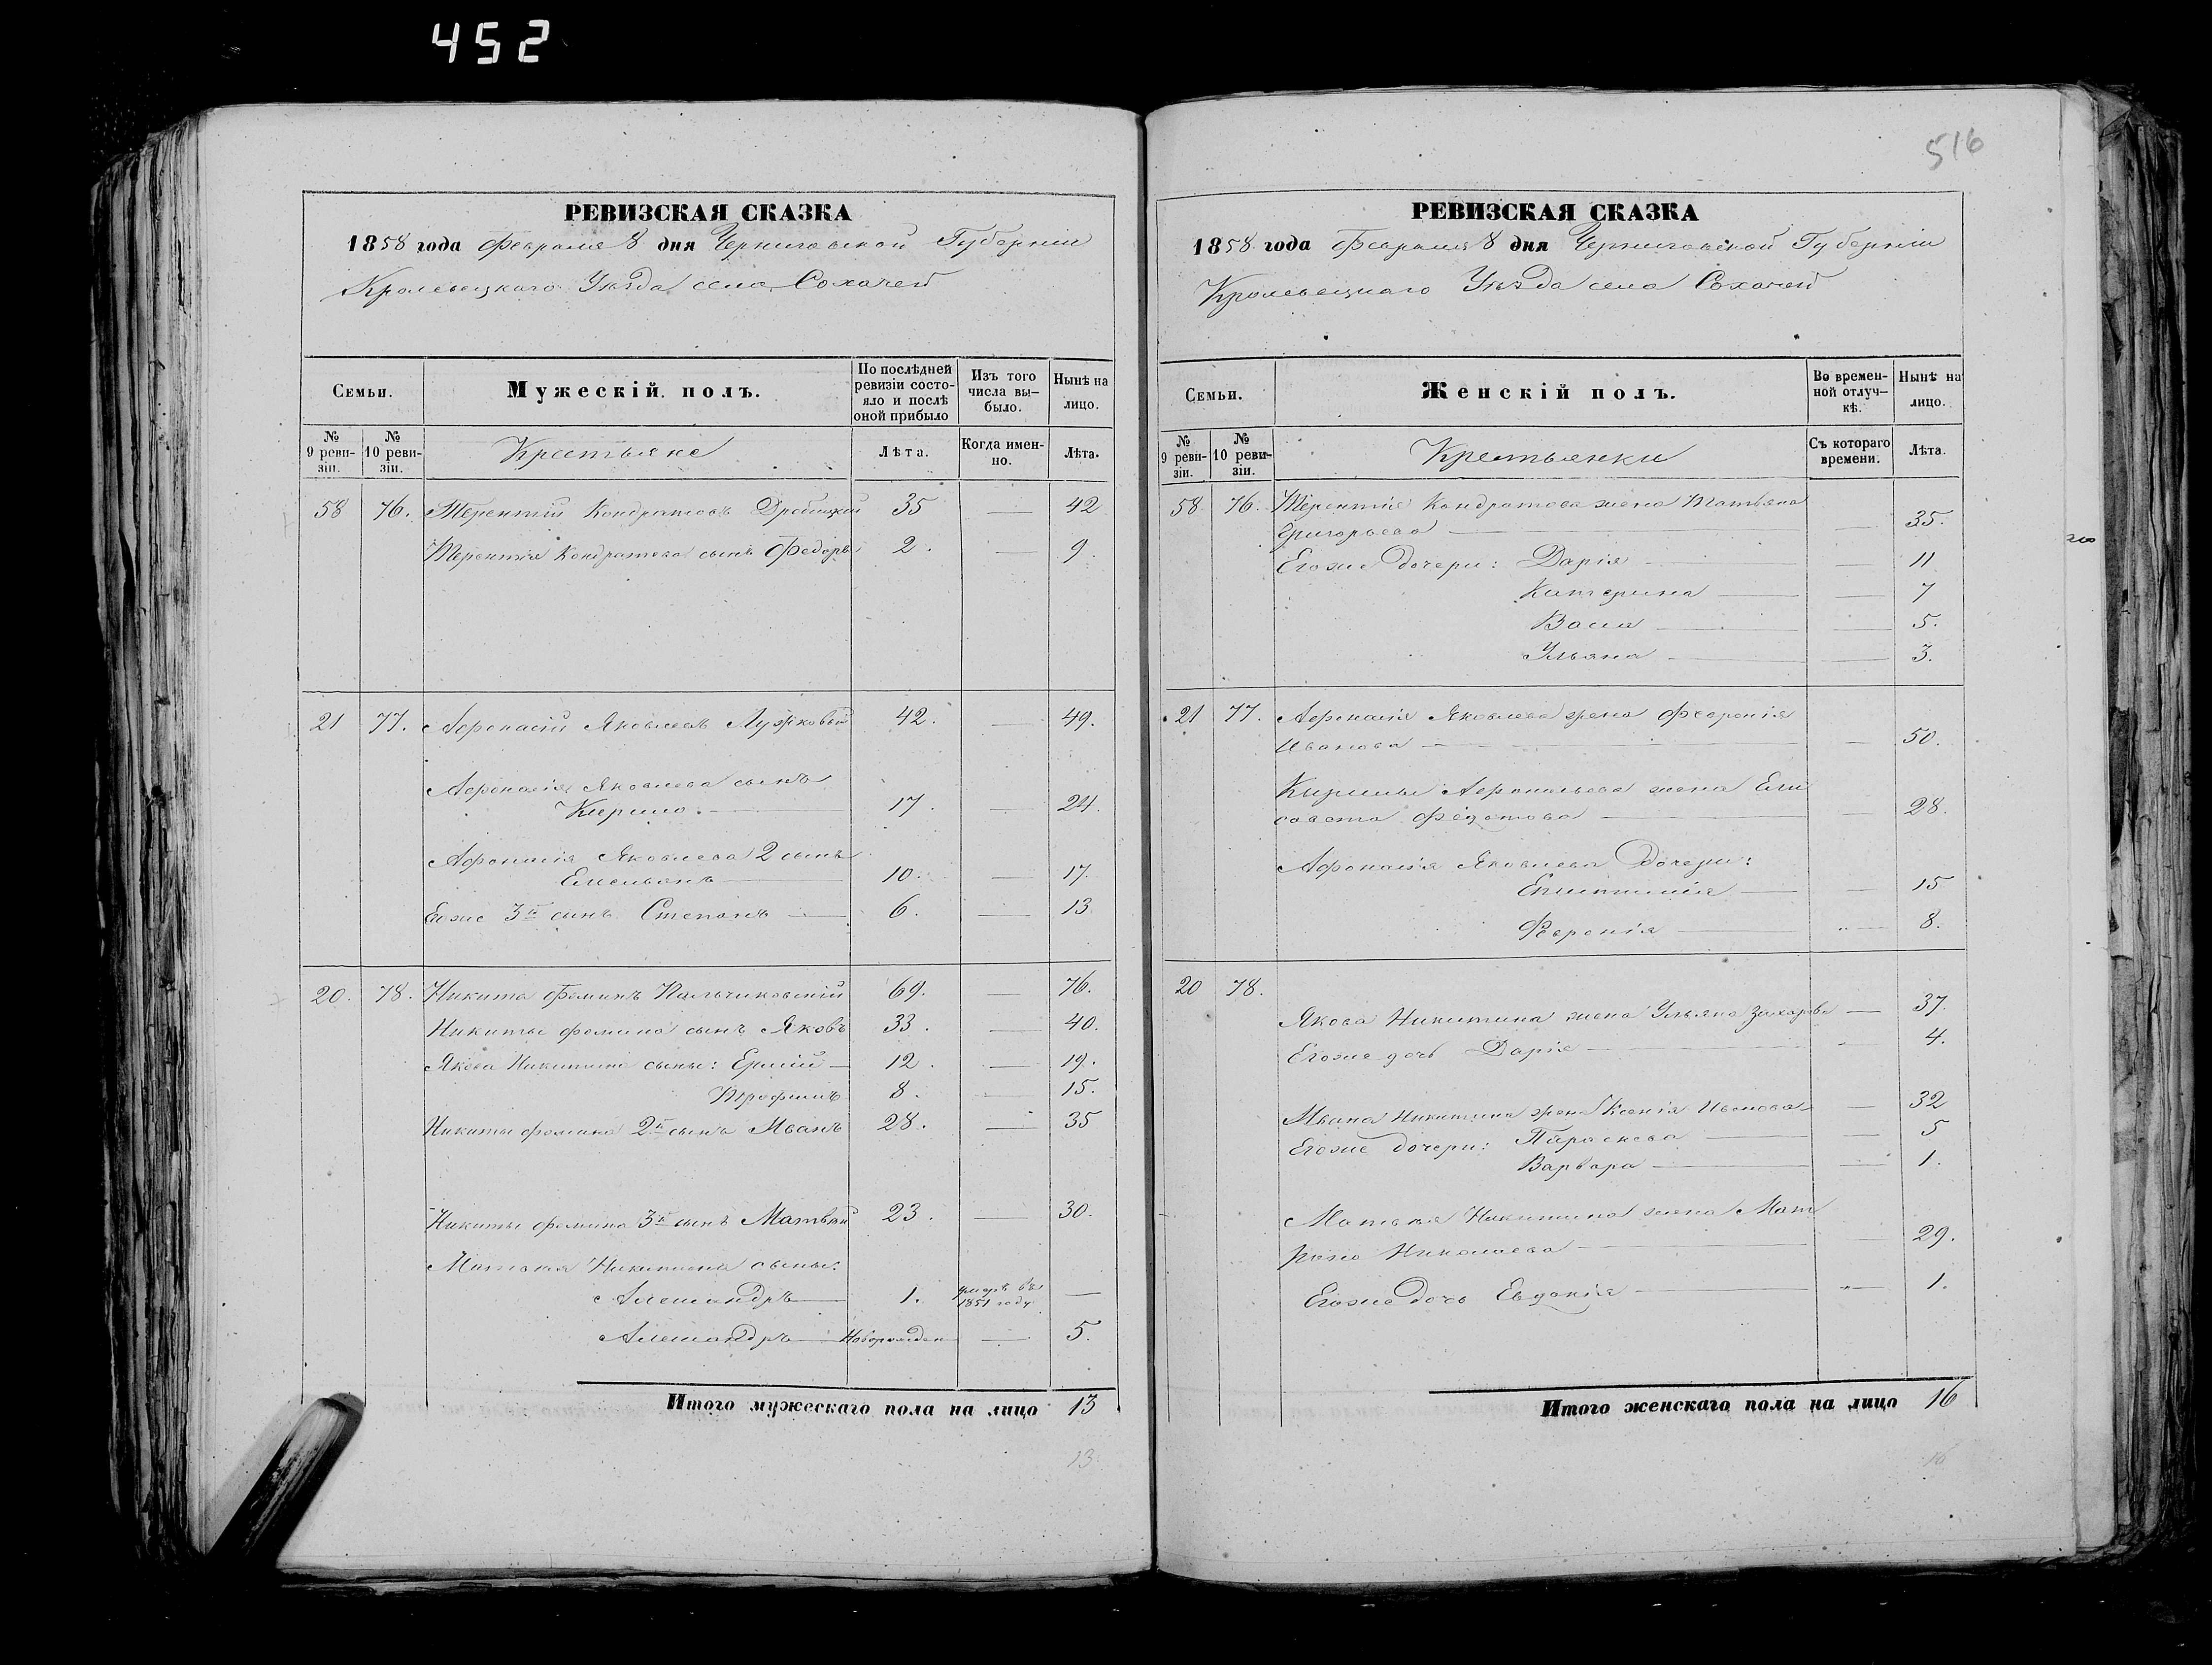 452
516
РЕВИЗСКАЯ СКАЗКА
1858 года Февраля 8 дня Черниговской Губерніи
Кролевецкаго Уѣзда села Сохачей
Семьи.
Мужескій полъ.
По послѣдней ревизіи состояло и послѣ оной прибыло
Изъ того числа вы-было.
Нынѣ на лицо.
№ 9 реви-зіи.
№ 10 реви-зіи.
Крестьяне
Лѣта.
Когда имен-но.
Лѣта.
58 76. Терентій Кондратовъ 35 — 42
Терентія Кондратова сынъ Федоръ 2. 9.
21 77. Афонасій Яковлевъ Лужковый 42. — 49.
Афонасія Яковлева сынъ
Кирило. — 17. — 24.
Афонасія Яковлева 2 сынъ
Емельянъ — 10. — 17.
Егоже 3й сынъ Степанъ — 6. — 13
20. 78. Никита Фоминъ Пальчиковскій 69. — 76.
Никиты Фомина сынъ Яковъ 33. — 40.
Якова Никитина сыны: Ермій — 12. — 19.
Трофимъ 8. — 15.
Никиты Фомина 2й сынъ Иванъ 28. — 35
Никиты Фомина 3й сынъ Матвѣй 23. — 30.
Матвѣя Никитина сыны:
Александръ — 1. умеръ въ 1851 году —
Александръ — Новорожден — 5.
Итого мужескаго пола на лицо 13
13
РЕВИЗСКАЯ СКАЗКА
1858 года Февраля 8 дня Черниговской Губерніи
Кролевецкаго Уѣзда села Сохачей
Семьи.
Женскій полъ.
Во времен-ной отлуч-кѣ.
Нынѣ на лицо.
№ 9 реви-зіи.
№ 10 реви-зіи.
Крестьянки
Съ котораго времени.
Лѣта.
58 76. Терентія Кондратова жена Татьяна
Григорьева — — 35.
Егоже дочери: Дарія — — 11
Катерина — — 7
Васса — — 5.
Ульяна — — 3.
21 77. Афонасія Яковлева жена Февронія
Иванова — — 50.
Кирилы Афонасьева жена Ели
савета Федотова — — 28.
Афонасія Яковлева дочери:
— — 15
Февронія — — 8.
20 78.
Якова Никитина жена Ульяна Захарова — 37.
Егоже дочь Дарія — — 4.
Ивана Никитина жена Ксенія Иванова — 32
Егоже дочери: Параскева — — 5
Варвара — — 1.
Матвѣя Никитина жена Мат
рена Николаева — — 29.
Егоже дочь Евдокія — — 1.
Итого женскаго пола на лицо 16
16